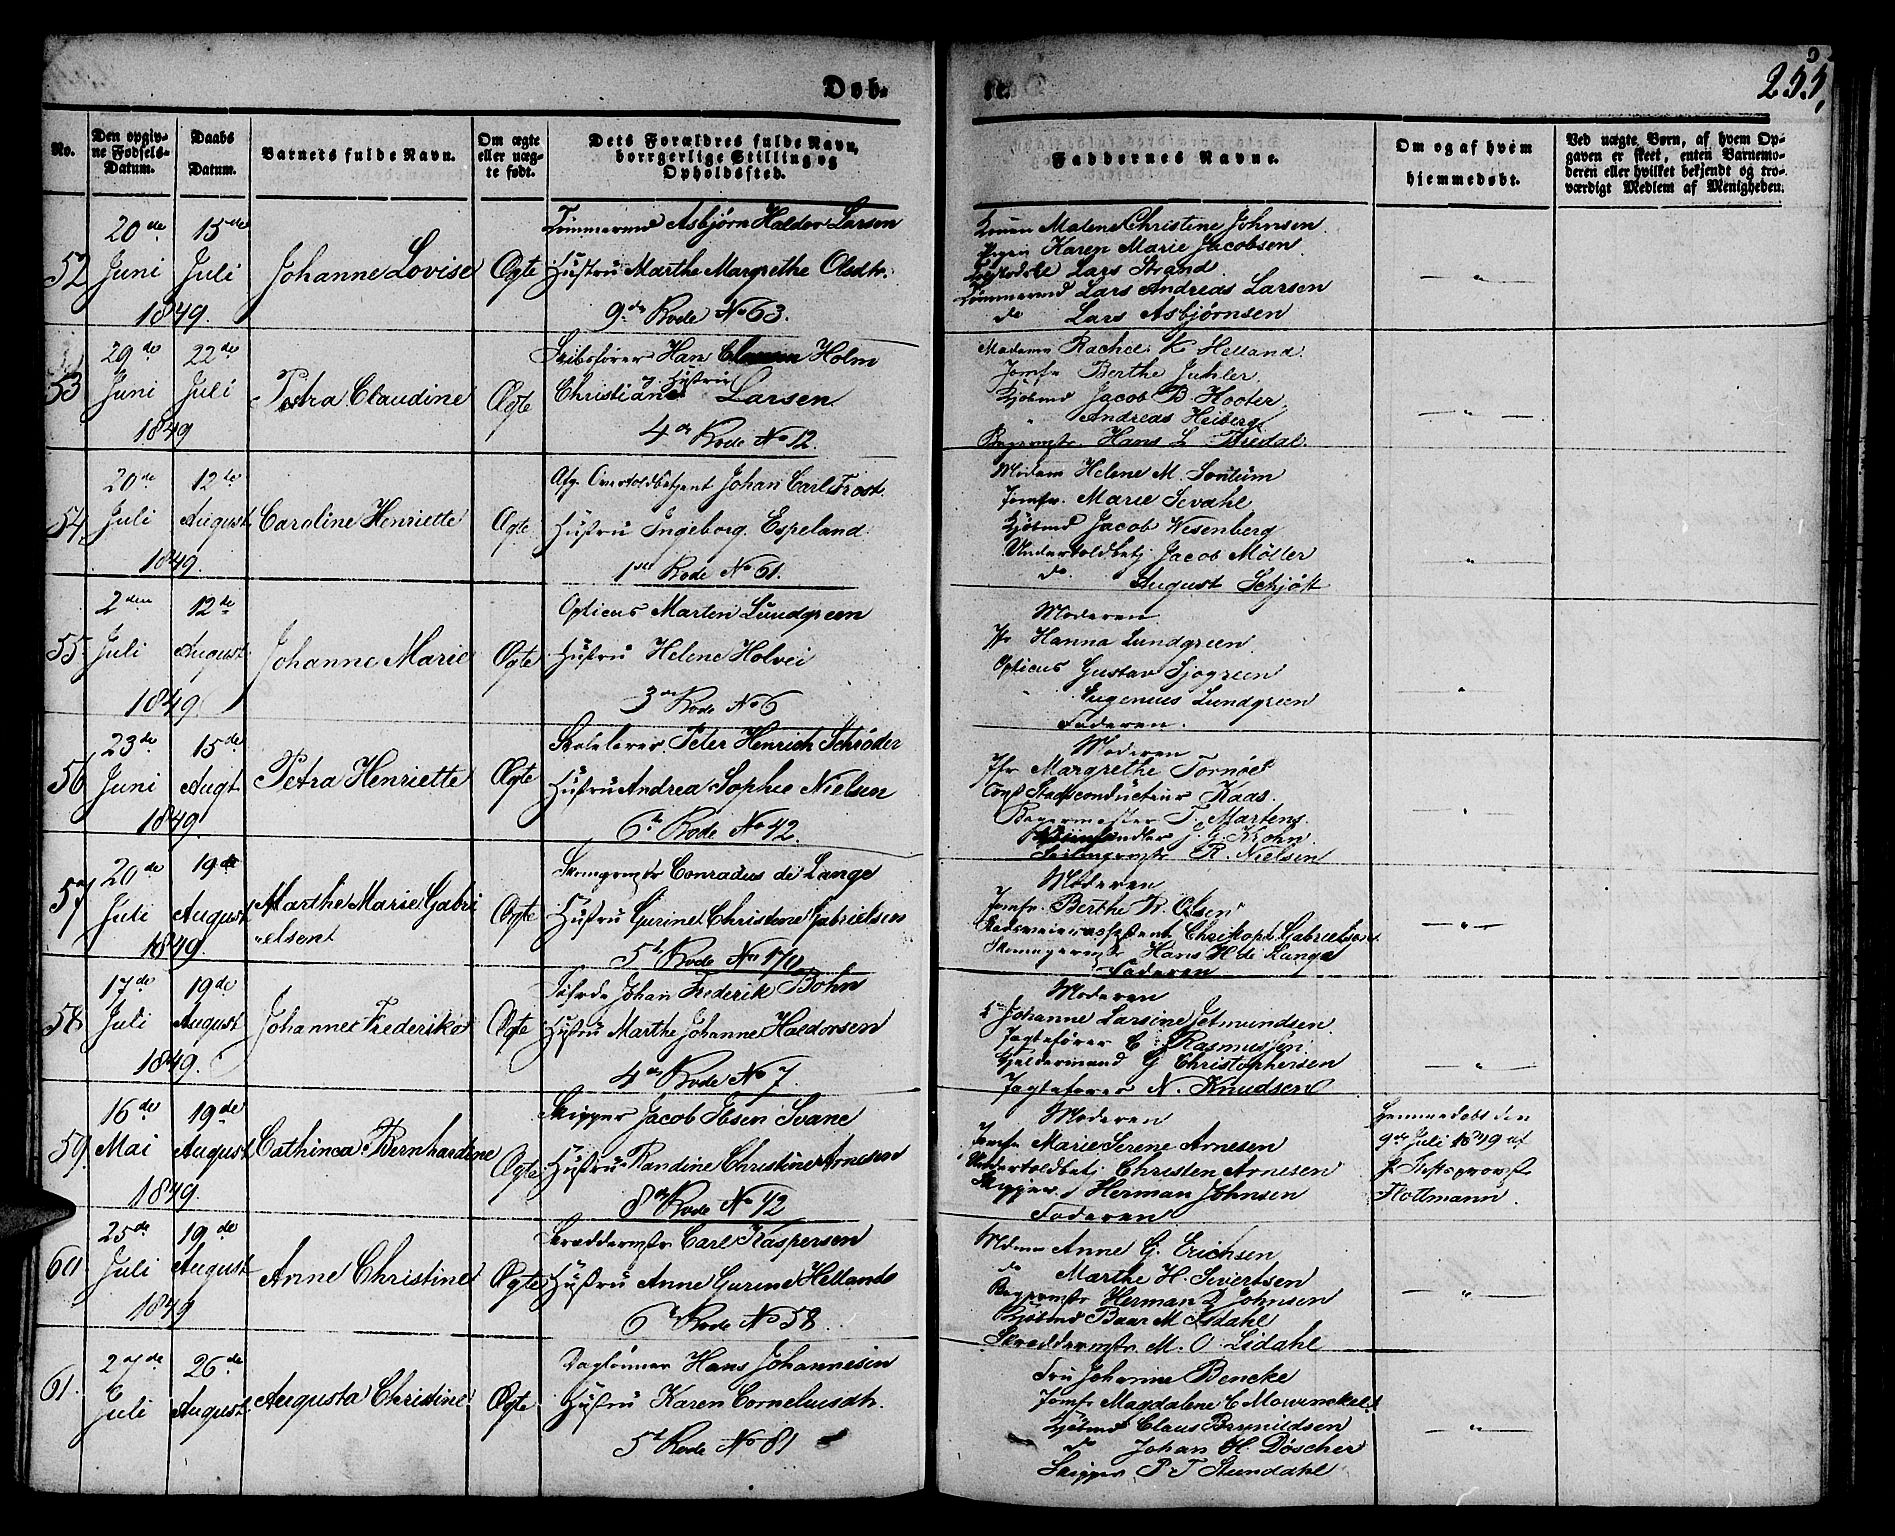 Døb-
te.
255.
No.
Den opgiv-
ne Fødsels-
Datum.
Daabs
Datum.
Barnets fulde Navn.
Om ægte
eller uæg-
te født.
Dets Forældres fulde Navn,
borrgerlige Stilling og
Opholdssted.
Faddernes Navne.
Om og af hvem
hjemmedøbt.
Ved uægte Børn, af hvem Op-
gaven er skeet, enten Barnemo-
deren eller hvilket bekjendt og tro-
værdigt Medlem af Menigheden.
52
20de Juni
15de Juli
1849.
Johanne Lovise
Ægte
Tømmermd Asbjørn Haldor Larsen
Hustru Marthe Margrethe Olsdtr.
9de Rode No 63.
Konen Malene Christine Johnsen
Pigen Karen Marie Jacobsen
Lars Strand
Tømmermd Lars Andreas Larsen
do Lars Asbjørnsen
"
53
29de Juni
22de Juli
1849
Petra Claudine
Ægte
Skibsfører Han Holm
og Hustru
Christiane Larsen
4de Rode No 12.
Madame Rachel K Helland
Jomfr Berthe Juhler
Kjøbmd Jacob B. Kooter
Andreas Heiberg
Bagermstr. Hans L. Bredal
"
54
20de Juli
12te August
1849.
Caroline Henriette
Ægte
Afg. Overtoldbetjent Johan Carl Frost
Hustru Ingeborg Espeland
1ste Rode No 61.
Madam Helene M. Sontum
Jomfr. Marie Sevahl
Kjøbmd Jacob Wesenberg
Undertoldbetj. Jacob Møller
do. August Schjøtt
"
55
2den Juli
12te August
1849
Johanne Marie
Ægte
Opticus Marten Lundgreen
Hustru Helene Holvei
3de Rode No 6
Moderen
Jfr Hanna Lundgreen
Opticus Gustav Sjøgreen
Eugenius Lundgreen
Faderen.
"
56
23de Juni
15de Augt
1849.
Petra Henriette
Ægte
Skolelærer Peter Henrich Schrøder
Hustru Andrea Sophie Nielsen
6te Rode No 42.
Moderen
Jfr Margrethe Tornøe
Const Stadsconducteur Kaas.
Bagermester T. Martens
J. G. Krohn
Seilmagermstr R. Nielsen
"
57
20de Juli
19de August
1849.
Marthe Marie Gabri
elsent
Ægte
Conradus de Lange
Hustru Gurine Christine Gabrielsen
5te Rode No 170
Moderen
Jomfr. Berthe K. Olsen
Christoph Gabrielsen
Hans H de Lange
Faderen
"
58
17de Juli
19de August
1849.
Johanne Frederikke
Ægte
Johan Frederik Bohn
Hustru Marthe Johanne Haldorsen
4de Rode No 7.
Moderen
Johanne Larsine Jetmundsen
Jagtefører C. Rasmussen
G Christophersen
Jagtefører N. Knudsen
"
59.
16de Mai
19de August
1849.
Cathinca Bernhardine
Ægte
Skipper Jacob Ibsen Svane
Hustru Randine Christine Arnesen
8de Rode No 42
Moderen
Jomfr Marie Serene Arnesen
Undertoldbetj Christen Arnesen
Skipper Herman Johnsen
Faderen
Hjemmedøbt den
9de Juli 1849 af
Hr Stiftsprovst
Flottmann.
60
25de Juli
19de August
1849
Anne Christine
Ægte
Skræddermstr Carl Kaspersen
Hustru Anne Gurine Hellands
6te Rode No 58.
Mdme Anne G. Erichsen
do Marthe H. Sivertsen
Bagermstr Herman D Johnsen
Kjøbmd Baar M Lidahl
Skræddermstr M. O. Lidahl
"
61.
27de Juli
26de August
Augusta Christine
Ægte
Dagløner Hans Johannesen
Hustru Karen Corneliusdtr.
5te Rode No 81
Fru Johanne Bencke
Jomfr Magdalene C Mowinckel
Kjøbmd Claus Brynildsen
do Johan H. Døscher
Skipper P T Stundahl
"